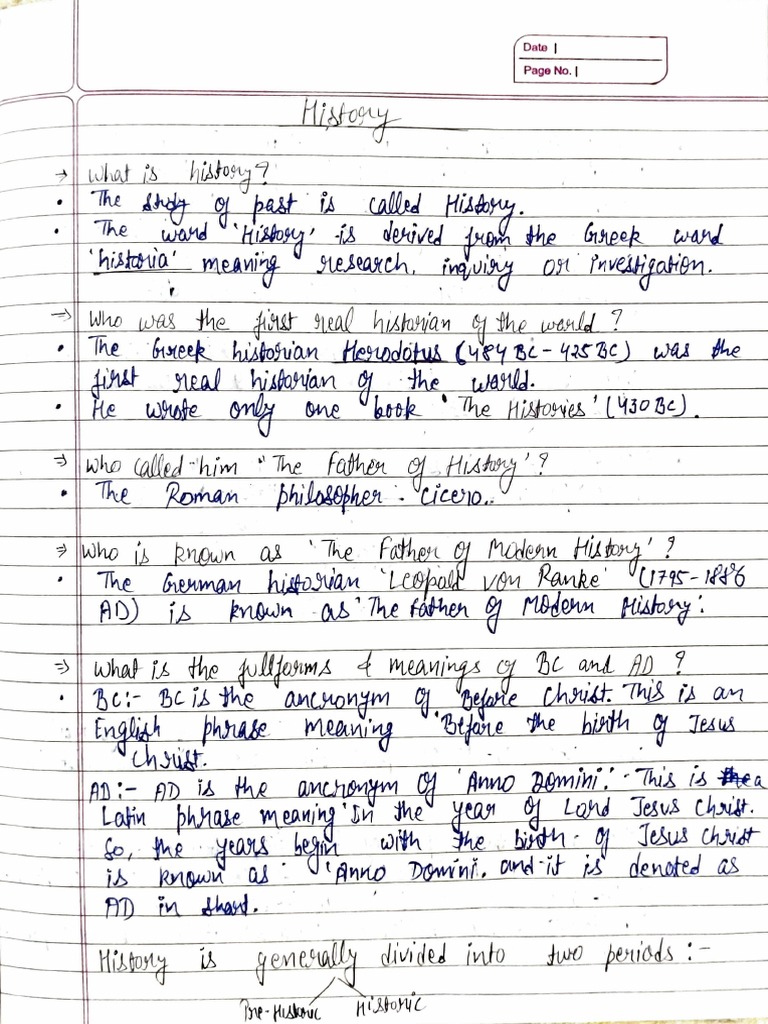 Date |
Page No. |
History
→ What is history?
• The study of past is called History.
• The ward 'History' is derived from the Greek ward
'historia' meaning research, inquiry or investigation.
⇒ Who was the first real historian of the world?
• The Greek historian Herodotus (484 BC - 425 BC) was the
first real historian of the world.
• He wrote only one book 'The Histories' (430 BC).
⇒ Who called him 'The Father of History'?
• The Roman philosopher - Cicero.
⇒ Who is known as 'The Father of Modern History'?
• The German historian 'Leopald von Ranke' (1795-1886
AD) is known as 'The Father of Modern History.'
⇒ What is the fullforms & meanings of BC and AD?
• BC:- BC is the ancronym of Before Christ. This is an
English phrase meaning 'Before the birth of Jesus
Christ.
AD:- AD is the ancronym of 'Anno Domini.' This is a
Latin phrase meaning 'In the year of Lord Jesus Christ.
So, the years begin with the birth of Jesus Christ
is known as 'Anno Domini. and it is denoted as
AD in short.
History is generally divided into two periods:-
Pre-Historic Historic